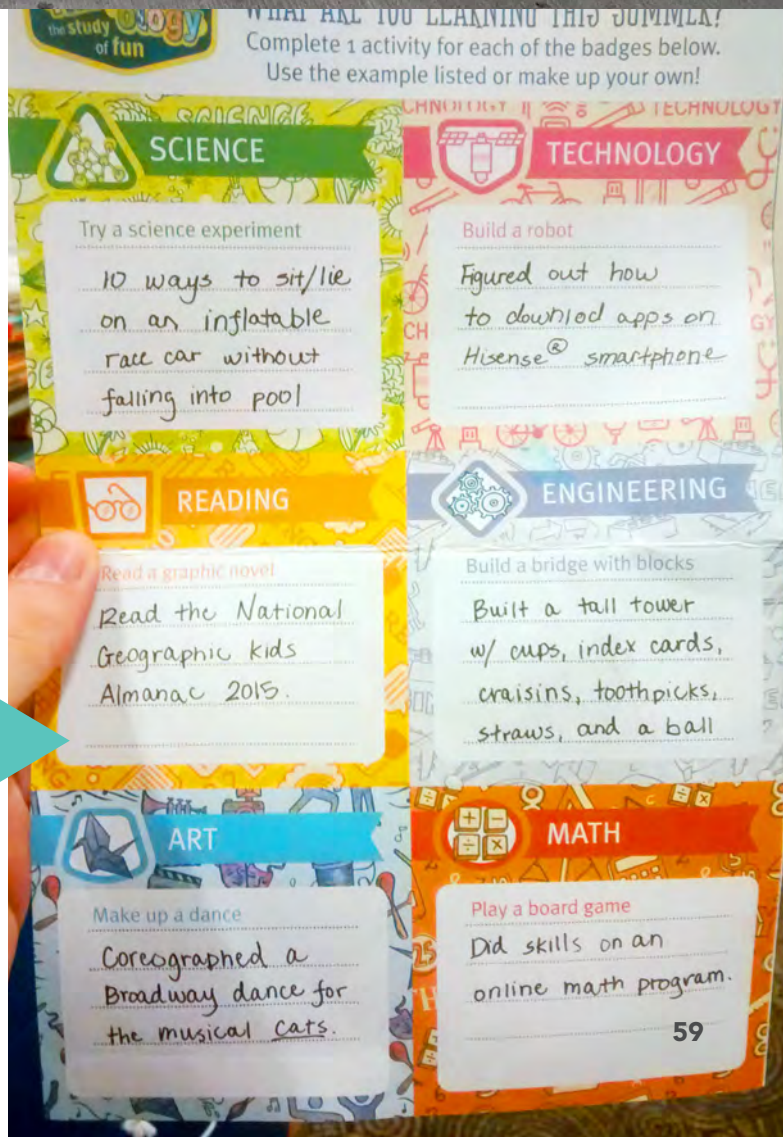 the study
of fun
WHAT ARE YOU LEARNING THIS SUMMER?
Complete 1 activity for each of the badges below.
Use the example listed or make up your own!
SCIENCE
Try a science experiment
10 ways to sit/lie
on an inflatable
race car without
falling into pool
TECHNOLOGY
Build a robot
Figured out how
to downlod apps on
Hisense® smartphone
READING
Read a graphic novel
Read the National
Geographic kids
Almanac 2015.
ENGINEERING
Build a bridge with blocks
Built a tall tower
w/ cups, index cards,
craisins, toothpicks,
straws, and a ball
ART
Make up a dance
Coreographed a
Broadway dance for
the musical Cats.
MATH
Play a board game
Did skills on an
online math program.
59